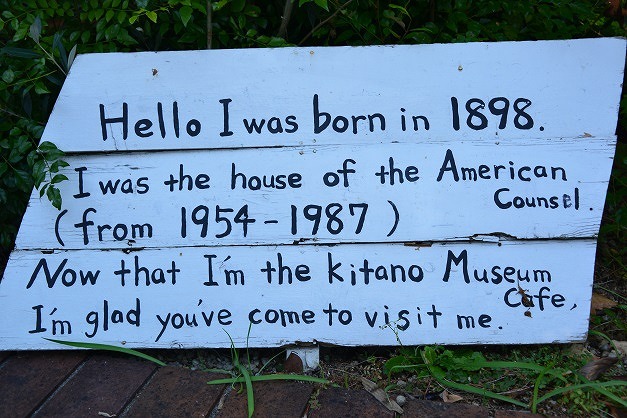 Hello I was born in 1898.
I was the house of the American
Counsel.
(from 1954-1987)
Now that I'm the kitano Museum
Cafe,
I'm glad you've come to visit me.